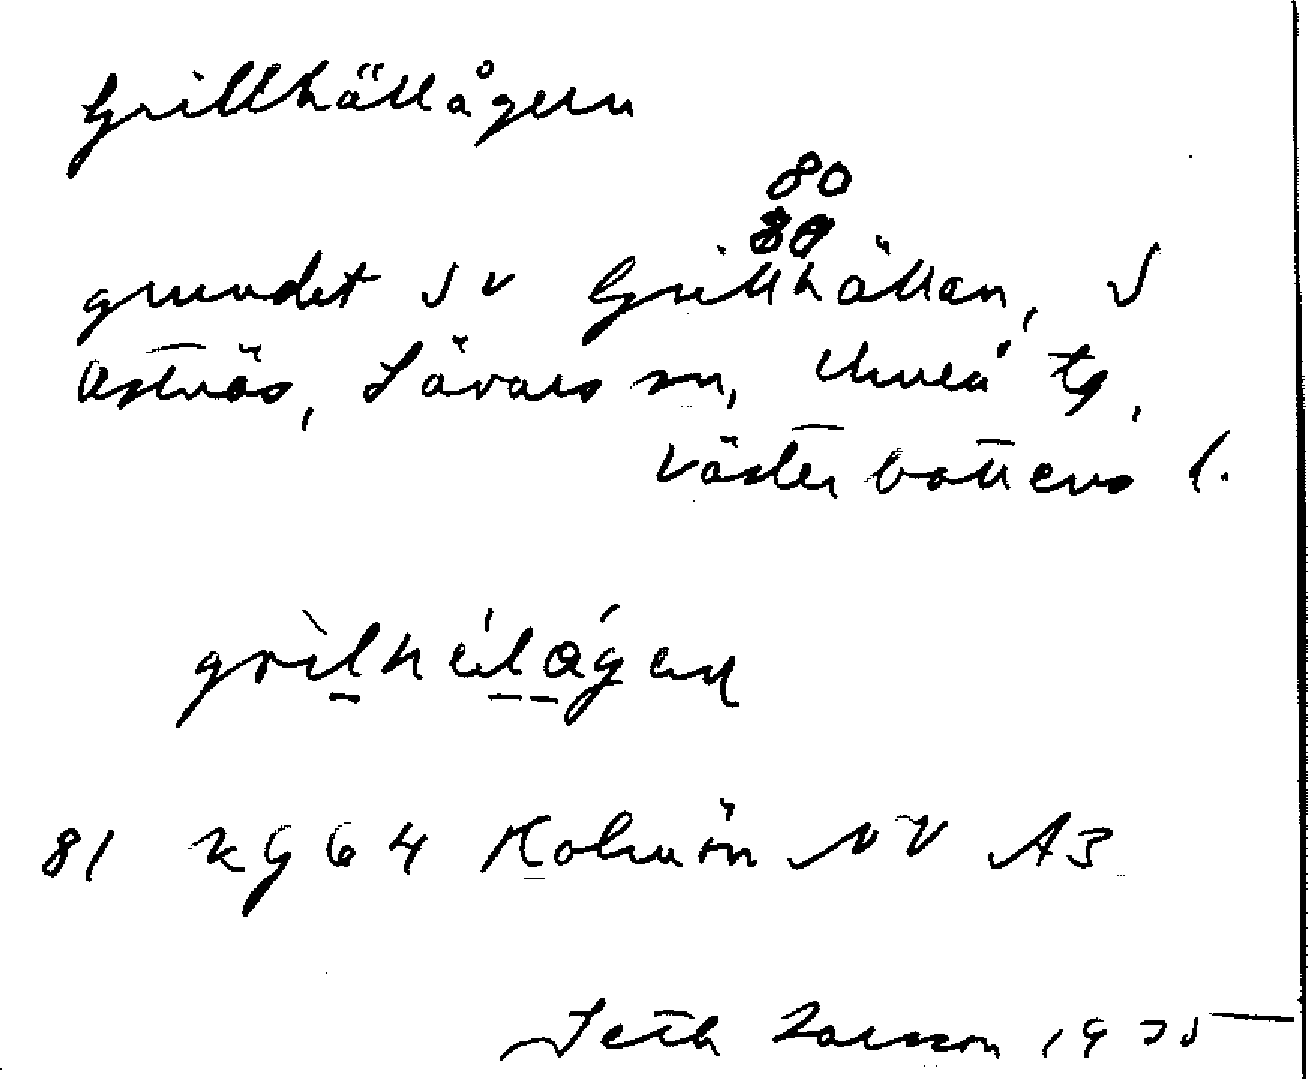 Grillhällågern
80
grundet SV Grillhällan, S
Ostnäs, Sävars sn, Umeå tg,
Västerbottens l.
grìlhélǻgen
81 2KG64 Holmön NV A3
Seth Larsson 1935